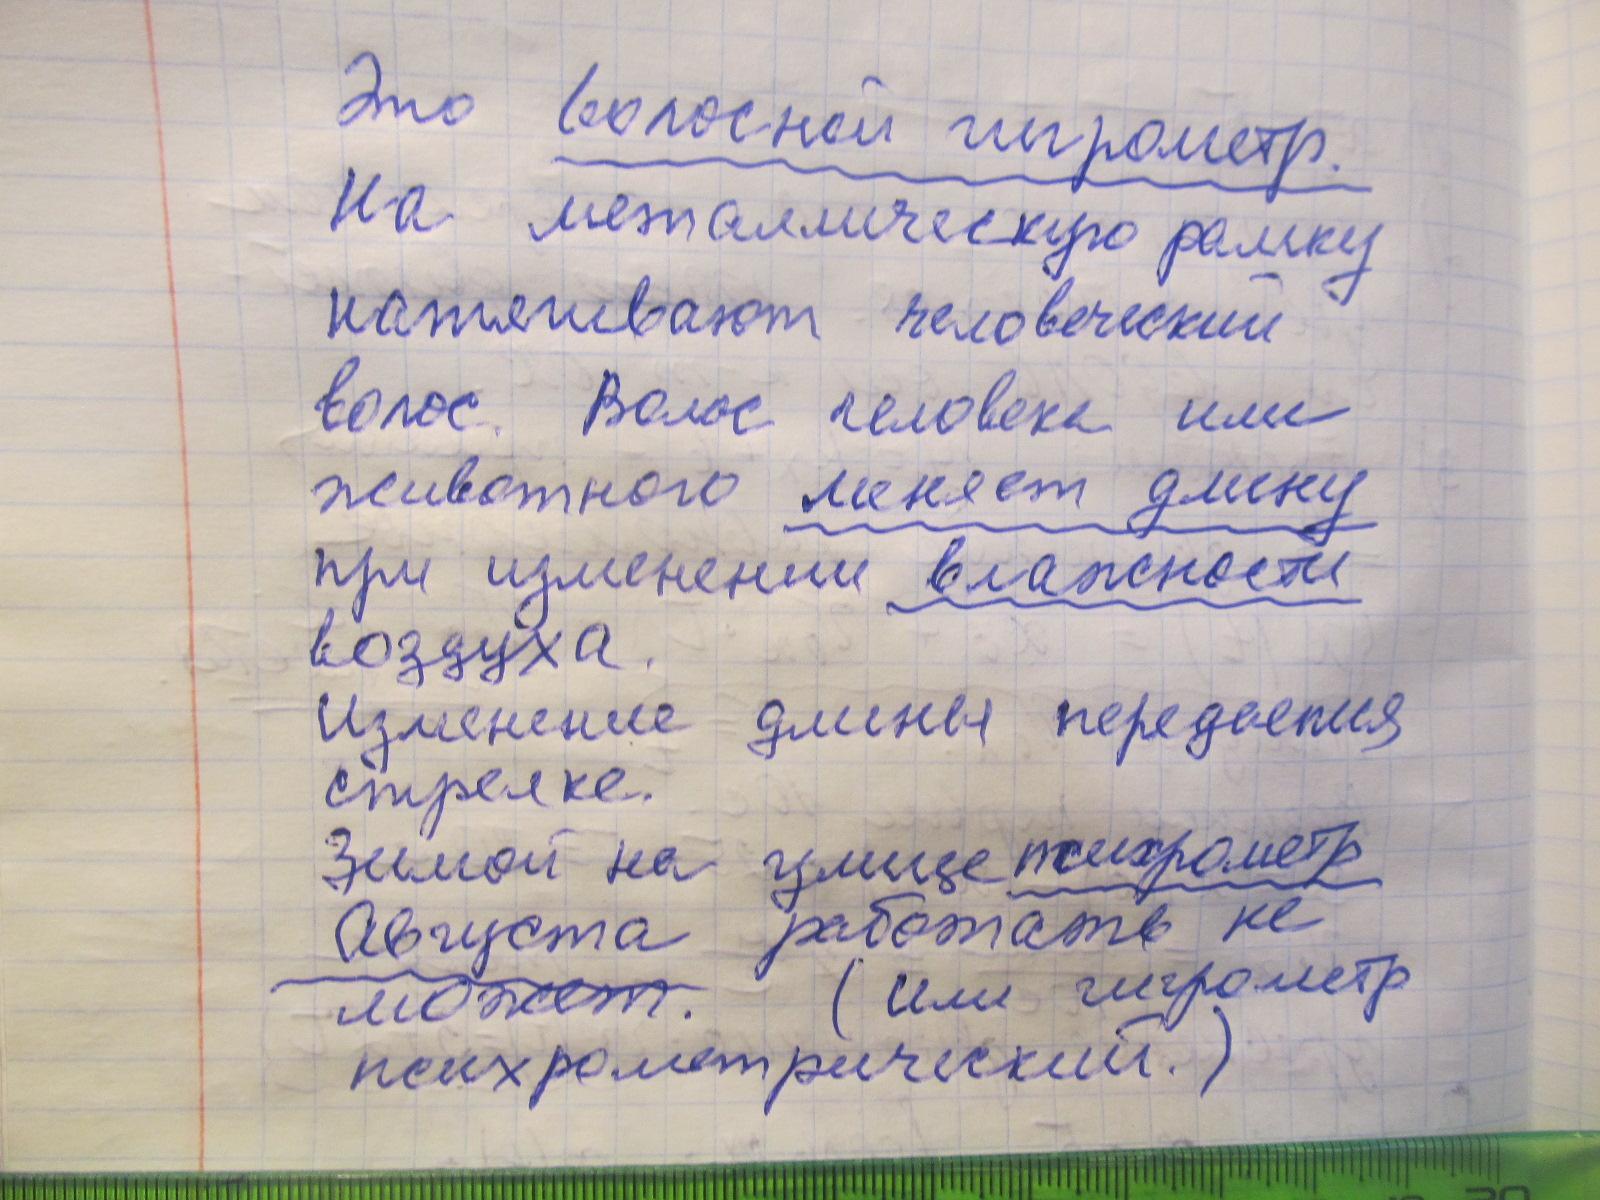 Это волосной гигрометр.
На металлическую рамку
натягивают человеческий
волос. Волос человека или
животного меняет длину
при изменении влажности
воздуха.
Изменение длины передается
стрелке.
Зимой на улице психрометр
Августа работать не
может. (Или гигрометр
психрометрический.)